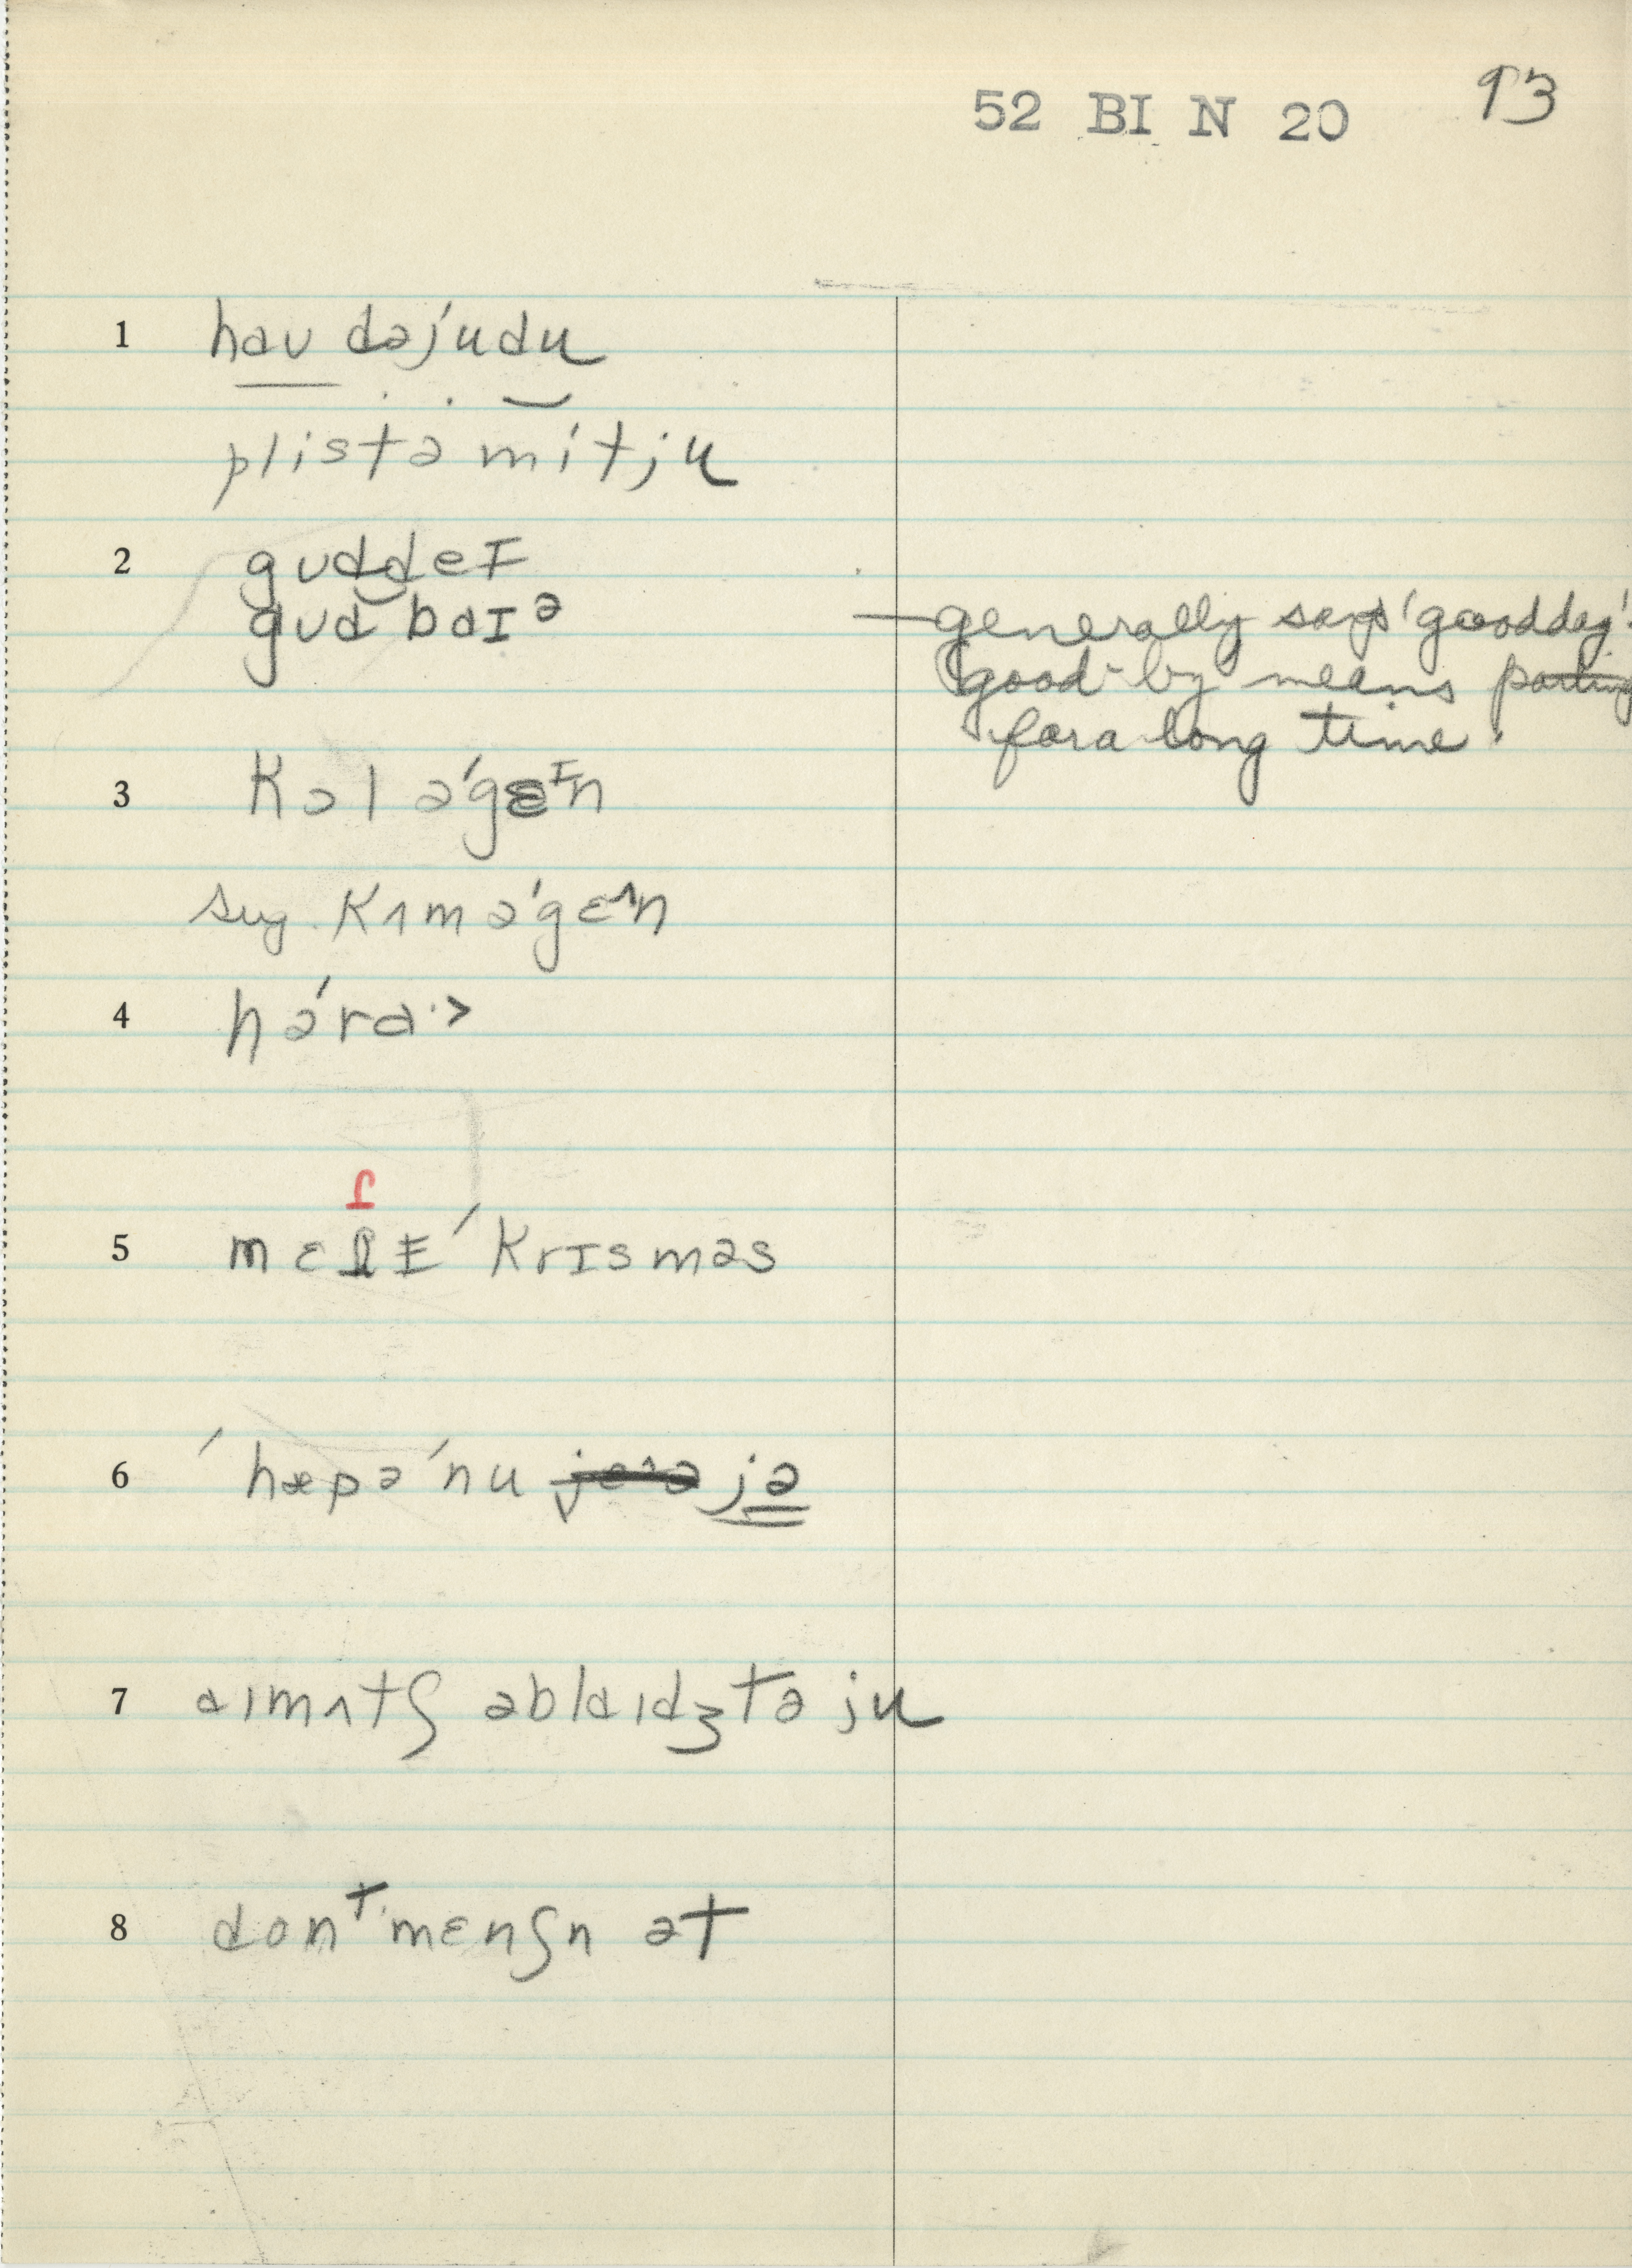 52 BI N 20 93
1 haʊ dəjudu
plistə mítju
2 gʊddeɪ
gʊd baɪᵊ — generally says 'goodday'.
good-by means parting
for a long time.
3 kɔl ə'gɛᶦn
sug. kʌm ə'gɛᶺn
4 hə́ra·>
ɾ
5 mɛɾɪ ´krɪsməs
6 ´hæpə´nu jə
7 aɪmʌtʃ əblaɪdʒtə ju
8 donᵗmɛnʃn ət